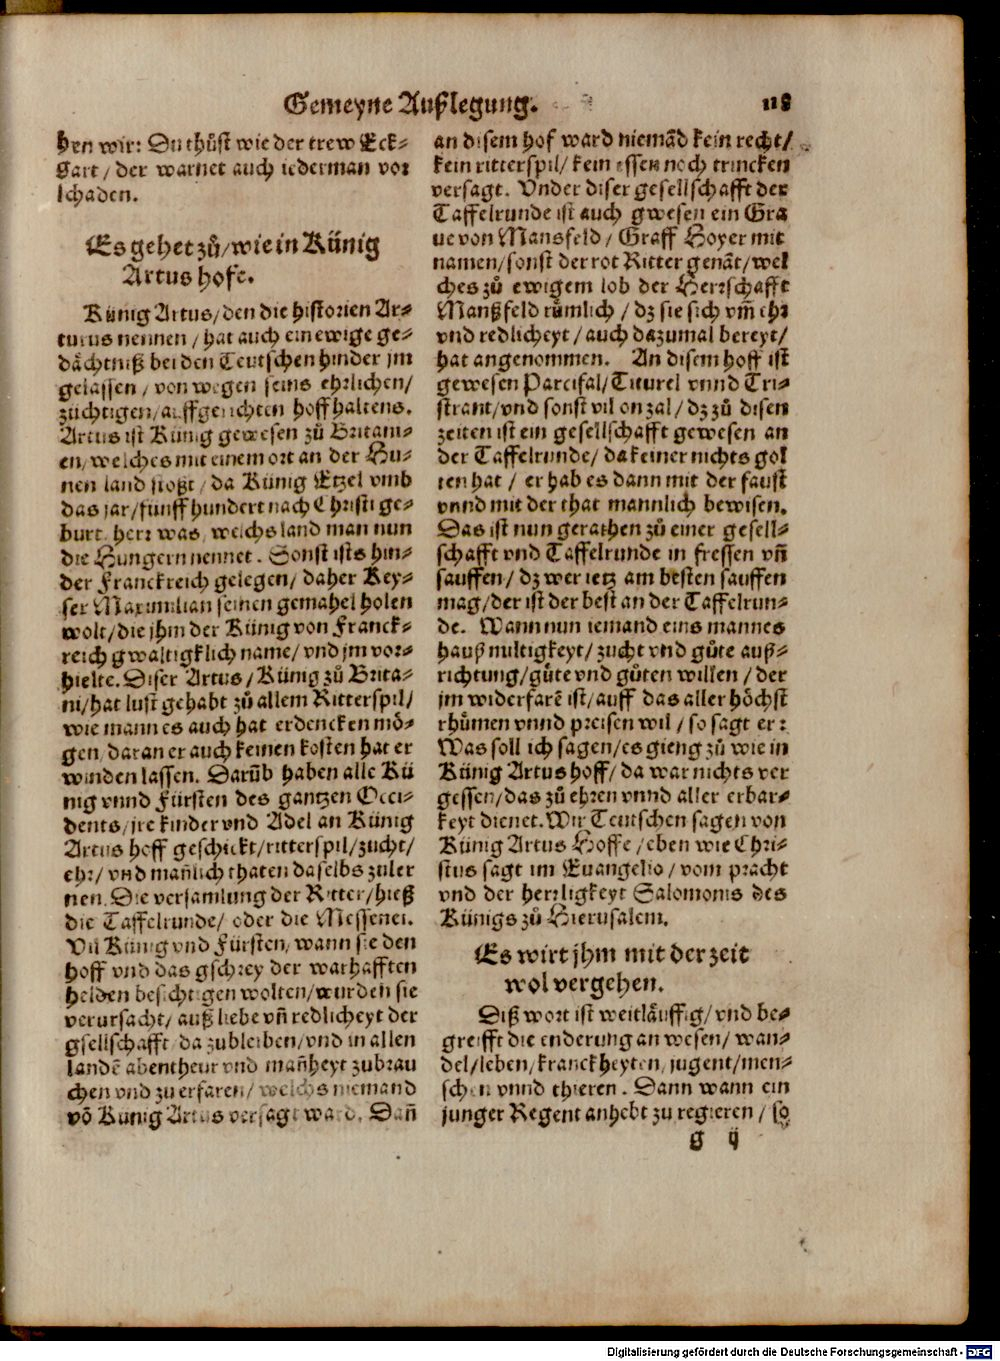 Gemeyne Außlegung. 118
hen wir: Du thůst wie der trew Eck-
hart / der warnet auch iederman vor
schaden.
Es gehet zů / wie in Künig
Artus hofe.
Künig Artus / den die historien Ar-
turus nennen / hat auch ein ewige ge-
dächtniß bei den Teutschen hinder jm
gelassen / von wegen seins ehrlichen /
züchtigen / auffgerichten hoffhaltens.
Artus ist Künig gewesen zů Britani-
en / welches mit einem ort an der Hu-
nen land stoßt / da Künig Etzel vmb
das jar / fünffhundert nach Christi ge-
burt / herr was / welchs land man nun
die Hungern nennet. Sonst ists hin-
der Franckreich gelegen / daher Key-
ser Maximilian seinen gemahel holen
wolt / die jhm der Künig von Franck-
reich gwaltigklich name / vnd jm vor-
hielte. Diser Artus / Künig zů Brita-
ni / hat lust gehabt zů allem Ritterspil /
wie mann es auch hat erdencken mö-
gen / daran er auch keinen kosten hat er
winden lassen. Darũb haben alle Kü
nig vnnd Fürsten des gantzen Occi-
dents / jre kinder vnd Adel an Künig
Artus hoff geschickt / ritterspil / zucht /
ehr / vnd mañlich thaten daselbs zuler
nen. Die versamlung der Ritter / hieß
die Taffelrunde / oder die Messenei.
Vñ Künig vnd Fürsten / wann sie den
hoff vnd das gschrey der warhafften
helden besichtigen wolten / wurden sie
verursacht / auß liebe vñ redlicheyt der
gsellschafft da zubleiben / vnd in allen
landẽ abentheur vnd mañheyt zubrau
chen vnd zu erfaren / welchs niemand
võ Künig Artus versagt ward. Dañ
an disem hof ward niemãd kein recht /
kein ritterspil / kein essen noch trincken
versagt. Vnder diser gesellschafft der
Taffelrunde ist auch gwesen ein Gra
ue von Mansfeld / Graff Hoyer mit
namen / sonst der rot Ritter genãt / wel
ches zů ewigem lob der Herrschafft
Manßfeld růmlich / dz sie sich vm̃ ehr
vnd redlicheyt / auch dazumal bereyt /
hat angenommen. An disem hoff ist
gewesen Parcifal / Titurel vnnd Tri-
strant / vnd sonst vil on zal / dz zů disen
zeiten ist ein gesellschafft gewesen an
der Taffelrunde / da keiner nichts gol
ten hat / er hab es dann mit der faust
vnnd mit der that mannlich bewisen.
Das ist nun gerathen zů einer gesell-
schafft vnd Taffelrunde in fressen vñ
sauffen / dz wer ietz am besten sauffen
mag / der ist der best an der Taffelrun-
de. Wann nun iemand eins mannes
hauß miltigkeyt / zucht vnd gůte auß-
richtung / gůte vnd gůten willen / der
jm widerfarẽ ist / auff das aller höchst
rhůmen vnnd preisen wil / so sagt er:
Was soll ich sagen / es gieng zů wie in
Künig Artus hoff / da war nichts ver
gessen / das zů ehren vnnd aller erbar-
keyt dienet. Wir Teutschen sagen von
Künig Artus Hoffe / eben wie Chri-
stus sagt im Euangelio / vom pracht
vnd der herrligkeyt Salomonis des
Künigs zů Hierusalem.
Es wirt jhm mit der zeit
wol vergehen.
Diß wort ist weitläuffig / vnd be-
greifft die enderung an wesen / wan-
del / leben / kranckheyten / jugent / men-
schen vnnd thieren. Dann wann ein
junger Regent anhebt zu regieren / so
g ij
Digitalisierung gefördert durch die Deutsche Forschungsgemeinschaft - DFG